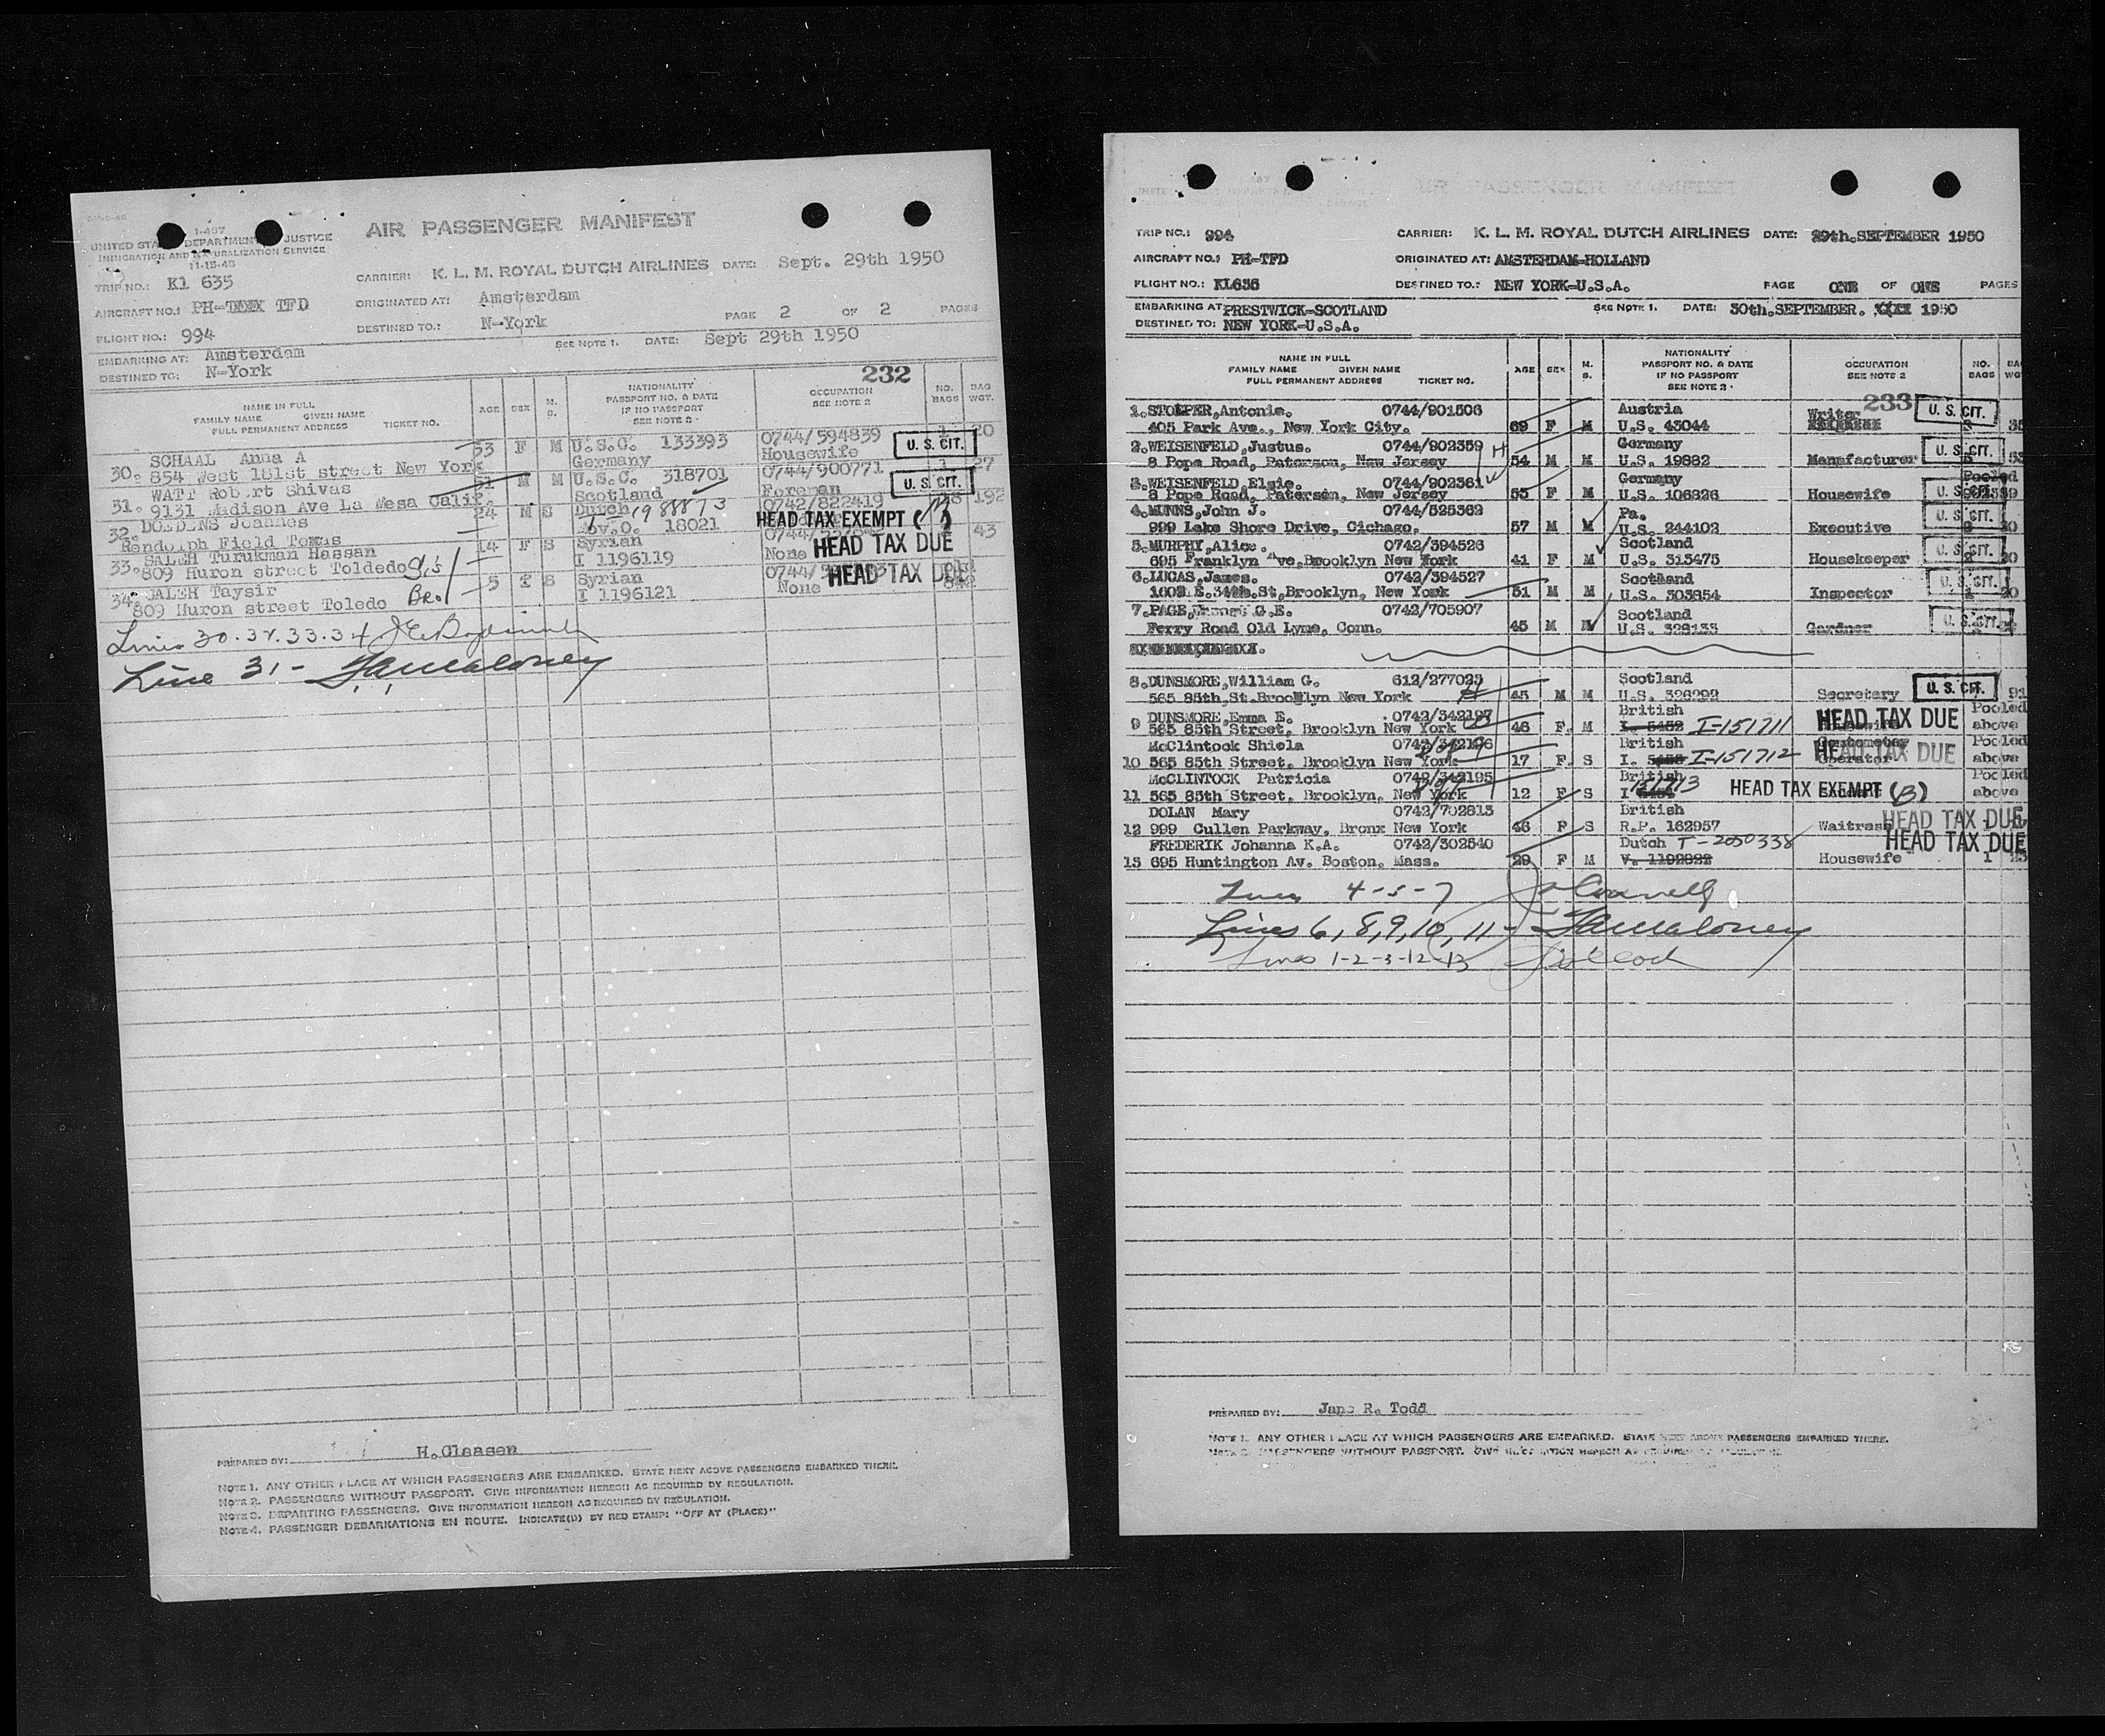 1-467
UNITED STATES DEPARTMENT OF JUSTICE
IMMIGRATION AND NATURALIZATION SERVICE
11-18-48
AIR PASSENGER MANIFEST
TRIP NO.: Kl 635
CARRIER: K. L. M. ROYAL DUTCH AIRLINES DATE: Sept. 29th 1950
AIRCRAFT NO.: PH-TFD
ORIGINATED AT: Amsterdam
FLIGHT NO.: 994
DESTINED TO.: N-York
PAGE 2 OF 2 PAGES
EMBARKING AT: Amsterdam
SEE NOTE 1. DATE: Sept 29th 1950
DESTINED TO: N-York
232
NAME IN FULL
FAMILY NAME GIVEN NAME
FULL PERMANENT ADDRESS TICKET NO.
AGE SEX M. S.
NATIONALITY
PASSPORT NO. & DATE
IF NO PASSPORT
SEE NOTE 2.
OCCUPATION
SEE NOTE 2
NO. BAGS
BAG WGT.
SCHAAL Anna A 53 F M U.S.C. 133393 0744/594839 1 20
30. 854 West 181st street New York Germany Housewife U. S. CIT.
WATT Robert Shivas 51 M M U.S.C. 318701 0744/900771 1 27
31. 9131 Madison Ave La Mesa Calif. Scotland Foreman U. S. CIT.
32. DOEDENS Joannes 24 M S Dutch 0742/822419 192
Randolph Field Texas 18021 HEAD TAX EXEMPT
33. SALEH Turukman Hassan 14 F S Syrian 43
809 Huron street Toldedo Sis I 1196119 None HEAD TAX DUE
34. SALEH Taysir 5 S Syrian 0744/
809 Huron street Toledo Bro. I 1196121 None HEAD TAX DUE
Lines 30. 32. 33. 34
Line 31 -
PREPARED BY: H. Claasen
NOTE 1. ANY OTHER PLACE AT WHICH PASSENGERS ARE EMBARKED. STATE NEXT ABOVE PASSENGERS EMBARKED THERE.
NOTE 2. PASSENGERS WITHOUT PASSPORT. GIVE INFORMATION HEREON AS REQUIRED BY REGULATION.
NOTE 3. DEPARTING PASSENGERS. GIVE INFORMATION HEREON AS REQUIRED BY REGULATION.
NOTE 4. PASSENGER DEBARKATIONS EN ROUTE. INDICATE(D) BY RED STAMP: "OFF AT (PLACE)"
AIR PASSENGER MANIFEST
TRIP NO.: 994
CARRIER: K. L. M. ROYAL DUTCH AIRLINES DATE: 29th.SEPTEMBER 1950
AIRCRAFT NO.: PH-TFD
ORIGINATED AT: AMSTERDAM-HOLLAND
FLIGHT NO.: KL635
DESTINED TO.: NEW YORK-U.S.A.
PAGE ONE OF ONE PAGES
EMBARKING AT PRESTWICK-SCOTLAND
SEE NOTE 1. DATE: 30th.SEPTEMBER. 1950
DESTINED TO: NEW YORK-U.S.A.
NAME IN FULL
FAMILY NAME GIVEN NAME
FULL PERMANENT ADDRESS TICKET NO.
AGE SEX M. S.
NATIONALITY
PASSPORT NO. & DATE
IF NO PASSPORT
SEE NOTE 2.
OCCUPATION
SEE NOTE 2
NO. BAGS
233
1. STOLPER,Antonie. 0744/901506 Austria Writer U. S. CIT.
405 Park Ave., New York City. 69 F M U.S. 43044
2. WEISENFELD,Justus. 0744/902359 Germany U. S. CIT.
8 Pope Road, Paterson, New Jersey 54 M M U.S. 19882 Manufacturer
3. WEISENFELD,Elsie. 0744/902361 Germany Pooled
8 Pope Road, Paterson, New Jersey 55 F M U.S. 106826 Housewife U. S. CIT.
4. MUNNS,John J. 0744/525362 Pa. U. S. CIT.
999 Lake Shore Drive, Cichago. 57 M M U.S. 244102 Executive
5. MURPHY,Alice. 0742/394526 Scotland U. S. CIT.
695 Franklyn Ave,Brooklyn New York 41 F M U.S. 313475 Housekeeper
6. LUCAS,James. 0742/394527 Scotland U. S. CIT.
E. 34th.St,Brooklyn, New York 51 M M U.S. 303854 Inspector
7. PAGE, G.E. 0742/705907 Scotland U. S. CIT.
Ferry Road Old Lyme, Conn. 45 M M U.S. Gardner
8. DUNSMORE,William G. 612/277023 Scotland
565 85th,St.Brooklyn New York 45 M M U.S. 326292 Secretary U. S. CIT.
9 DUNSMORE,Emma E. 0742/342197 British HEAD TAX DUE Pooled
565 85th Street, Brooklyn New York 46 F. M I-151711 above
McClintock Shiela 0742/342196 British Pooled
10 565 85th Street, Brooklyn New York 17 F. S I. I-151712 Operator HEAD TAX DUE above
McCLINTOCK Patricia 0742/342195 British Pooled
11 565 85th Street, Brooklyn, New York 12 F S I 151713 HEAD TAX EXEMPT (3) above
DOLAN Mary 0742/702813 British HEAD TAX DUE
12 999 Cullen Parkway, Bronx New York 46 F S R.P. 162957 Waitress
FREDERIK Johanna K.A. 0742/302540 Dutch T-2050338 HEAD TAX DUE
13 695 Huntington Av. Boston, Mass. 29 F M V. 1192822 Housewife 1
Lines 4-5-7
Lines 6, 8, 9, 10, 11 -
Lines 1-2-3-12-13
PREPARED BY: Jane R. Todd
NOTE 1. ANY OTHER PLACE AT WHICH PASSENGERS ARE EMBARKED. STATE NEXT ABOVE PASSENGERS EMBARKED THERE.
NOTE 2. PASSENGERS WITHOUT PASSPORT. GIVE INFORMATION HEREON AS REQUIRED BY REGULATION.